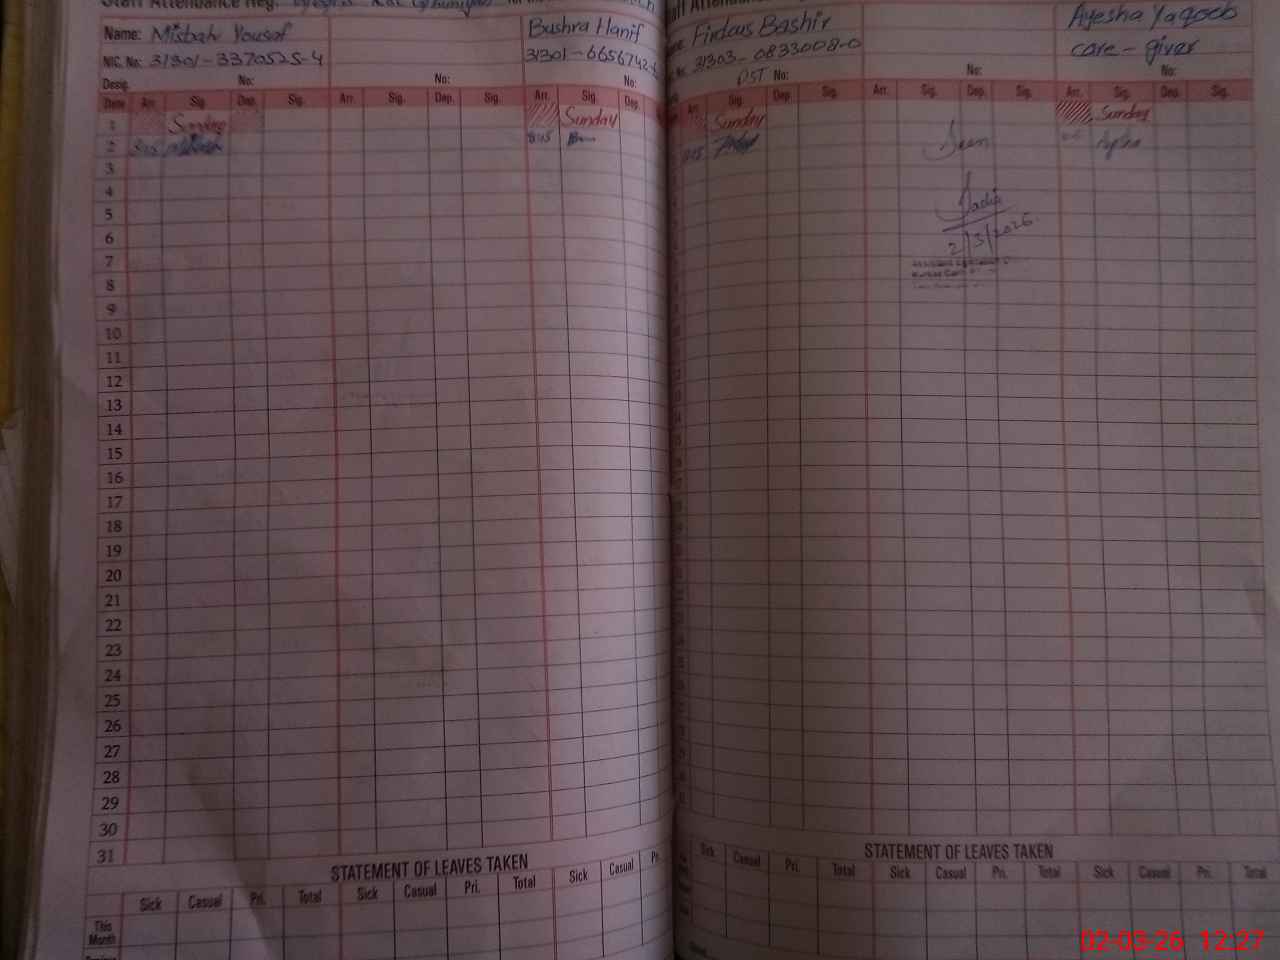 Staff Attendance Reg.
Name: Misbah Yousaf
NIC. No: 31301-3370525-4
Desig. No: No:
Bushra Hanif
31301-6656742-
No:
Date Arr. Sig. Dep. Sig. Arr. Sig. Dep. Sig. Arr. Sig. Dep.
1 Sunday Sunday
2 8:15
3
4
5
6
7
8
9
10
11
12
13
14
15
16
17
18
19
20
21
22
23
24
25
26
27
28
29
30
31
STATEMENT OF LEAVES TAKEN
Sick Casual Pri. Total Sick Casual Pri. Total Sick Casual
This
Month
Staff Attendance
Firdous Bashir
31303-0833008-0
DST No: No:
Ayesha Yaqoob
care-giver
No:
Arr. Sig. Dep. Sig. Arr. Sig. Dep. Sig. Arr. Sig. Dep. Sig.
Sunday Sunday
Seen
Sadia
2/3/2026
STATEMENT OF LEAVES TAKEN
Sick Casual Pri. Total Sick Casual Pri. Total Sick Casual Pri. Total
02-03-26 12:27